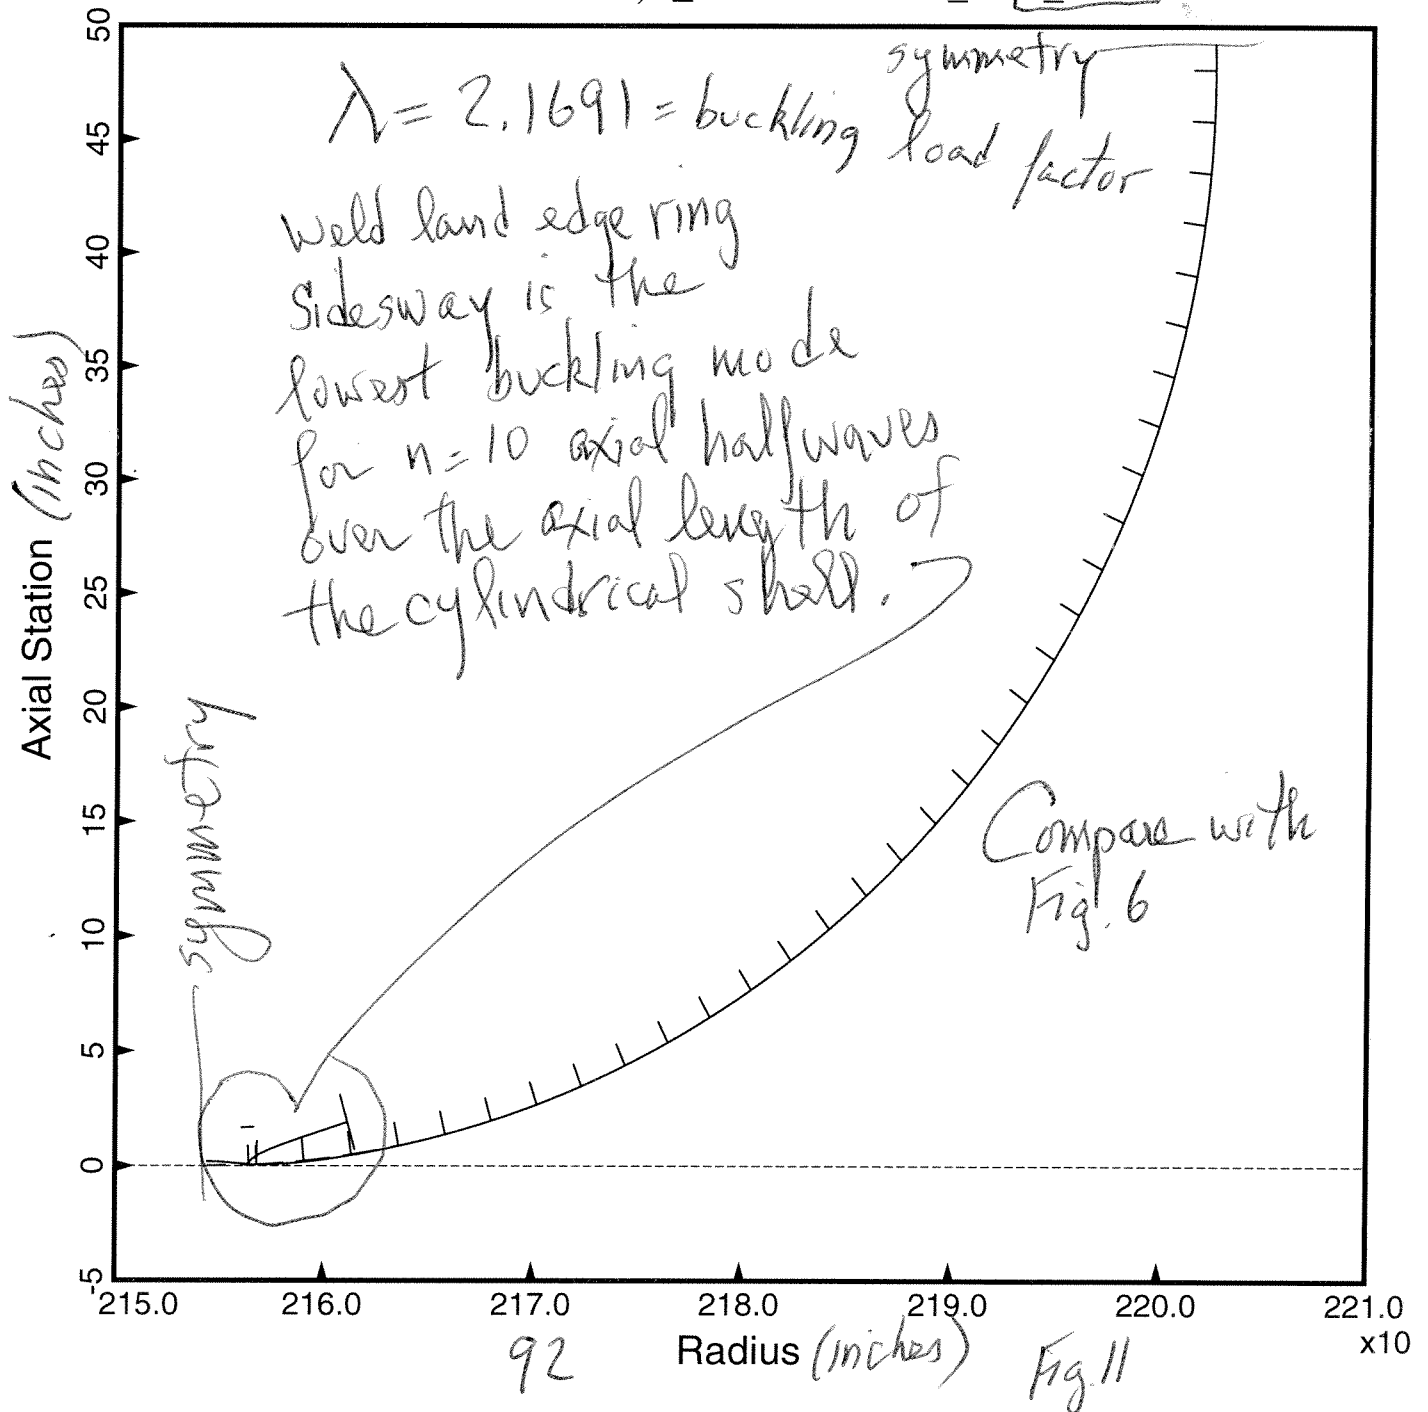 symmetry
λ = 2.1691 = buckling load factor
weld land edge ring
sidesway is the
lowest buckling mode
for n=10 axial halfwaves
over the axial length of
the cylindrical shell.
symmetry
Compare with
Fig. 6
Axial Station (inches)
50
45
40
35
30
25
20
15
10
5
0
-5
215.0 216.0 217.0 218.0 219.0 220.0 221.0
x10
Radius (inches)
92
Fig. 11